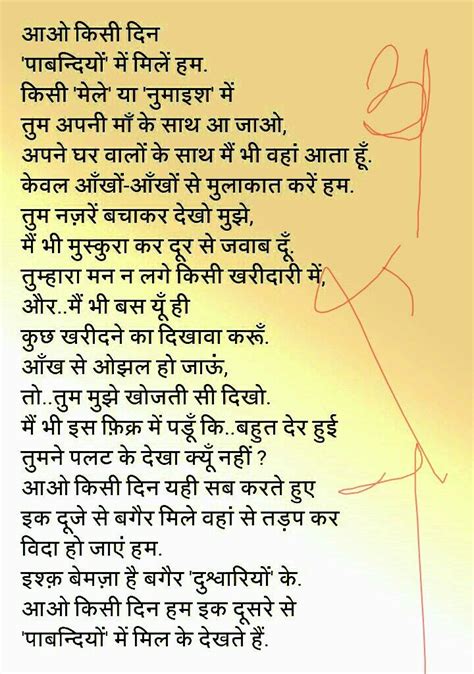 आओ किसी दिन
'पाबन्दियों' में मिलें हम.
किसी 'मेले' या 'नुमाइश' में
तुम अपनी माँ के साथ आ जाओ,
अपने घर वालों के साथ मैं भी वहां आता हूँ.
केवल आँखों-आँखों से मुलाकात करें हम.
तुम नज़रें बचाकर देखो मुझे,
मैं भी मुस्कुरा कर दूर से जवाब दूँ.
तुम्हारा मन न लगे किसी खरीदारी में,
और..मैं भी बस यूँ ही
कुछ खरीदने का दिखावा करूँ.
आँख से ओझल हो जाऊं,
तो..तुम मुझे खोजती सी दिखो.
मैं भी इस फ़िक्र में पडूँ कि..बहुत देर हुई
तुमने पलट के देखा क्यूँ नहीं ?
आओ किसी दिन यही सब करते हुए
इक दूजे से बगैर मिले वहां से तड़प कर
विदा हो जाएं हम.
इश्क़ बेमज़ा है बगैर 'दुश्वारियों' के.
आओ किसी दिन हम इक दूसरे से
'पाबन्दियों' में मिल के देखते हैं.